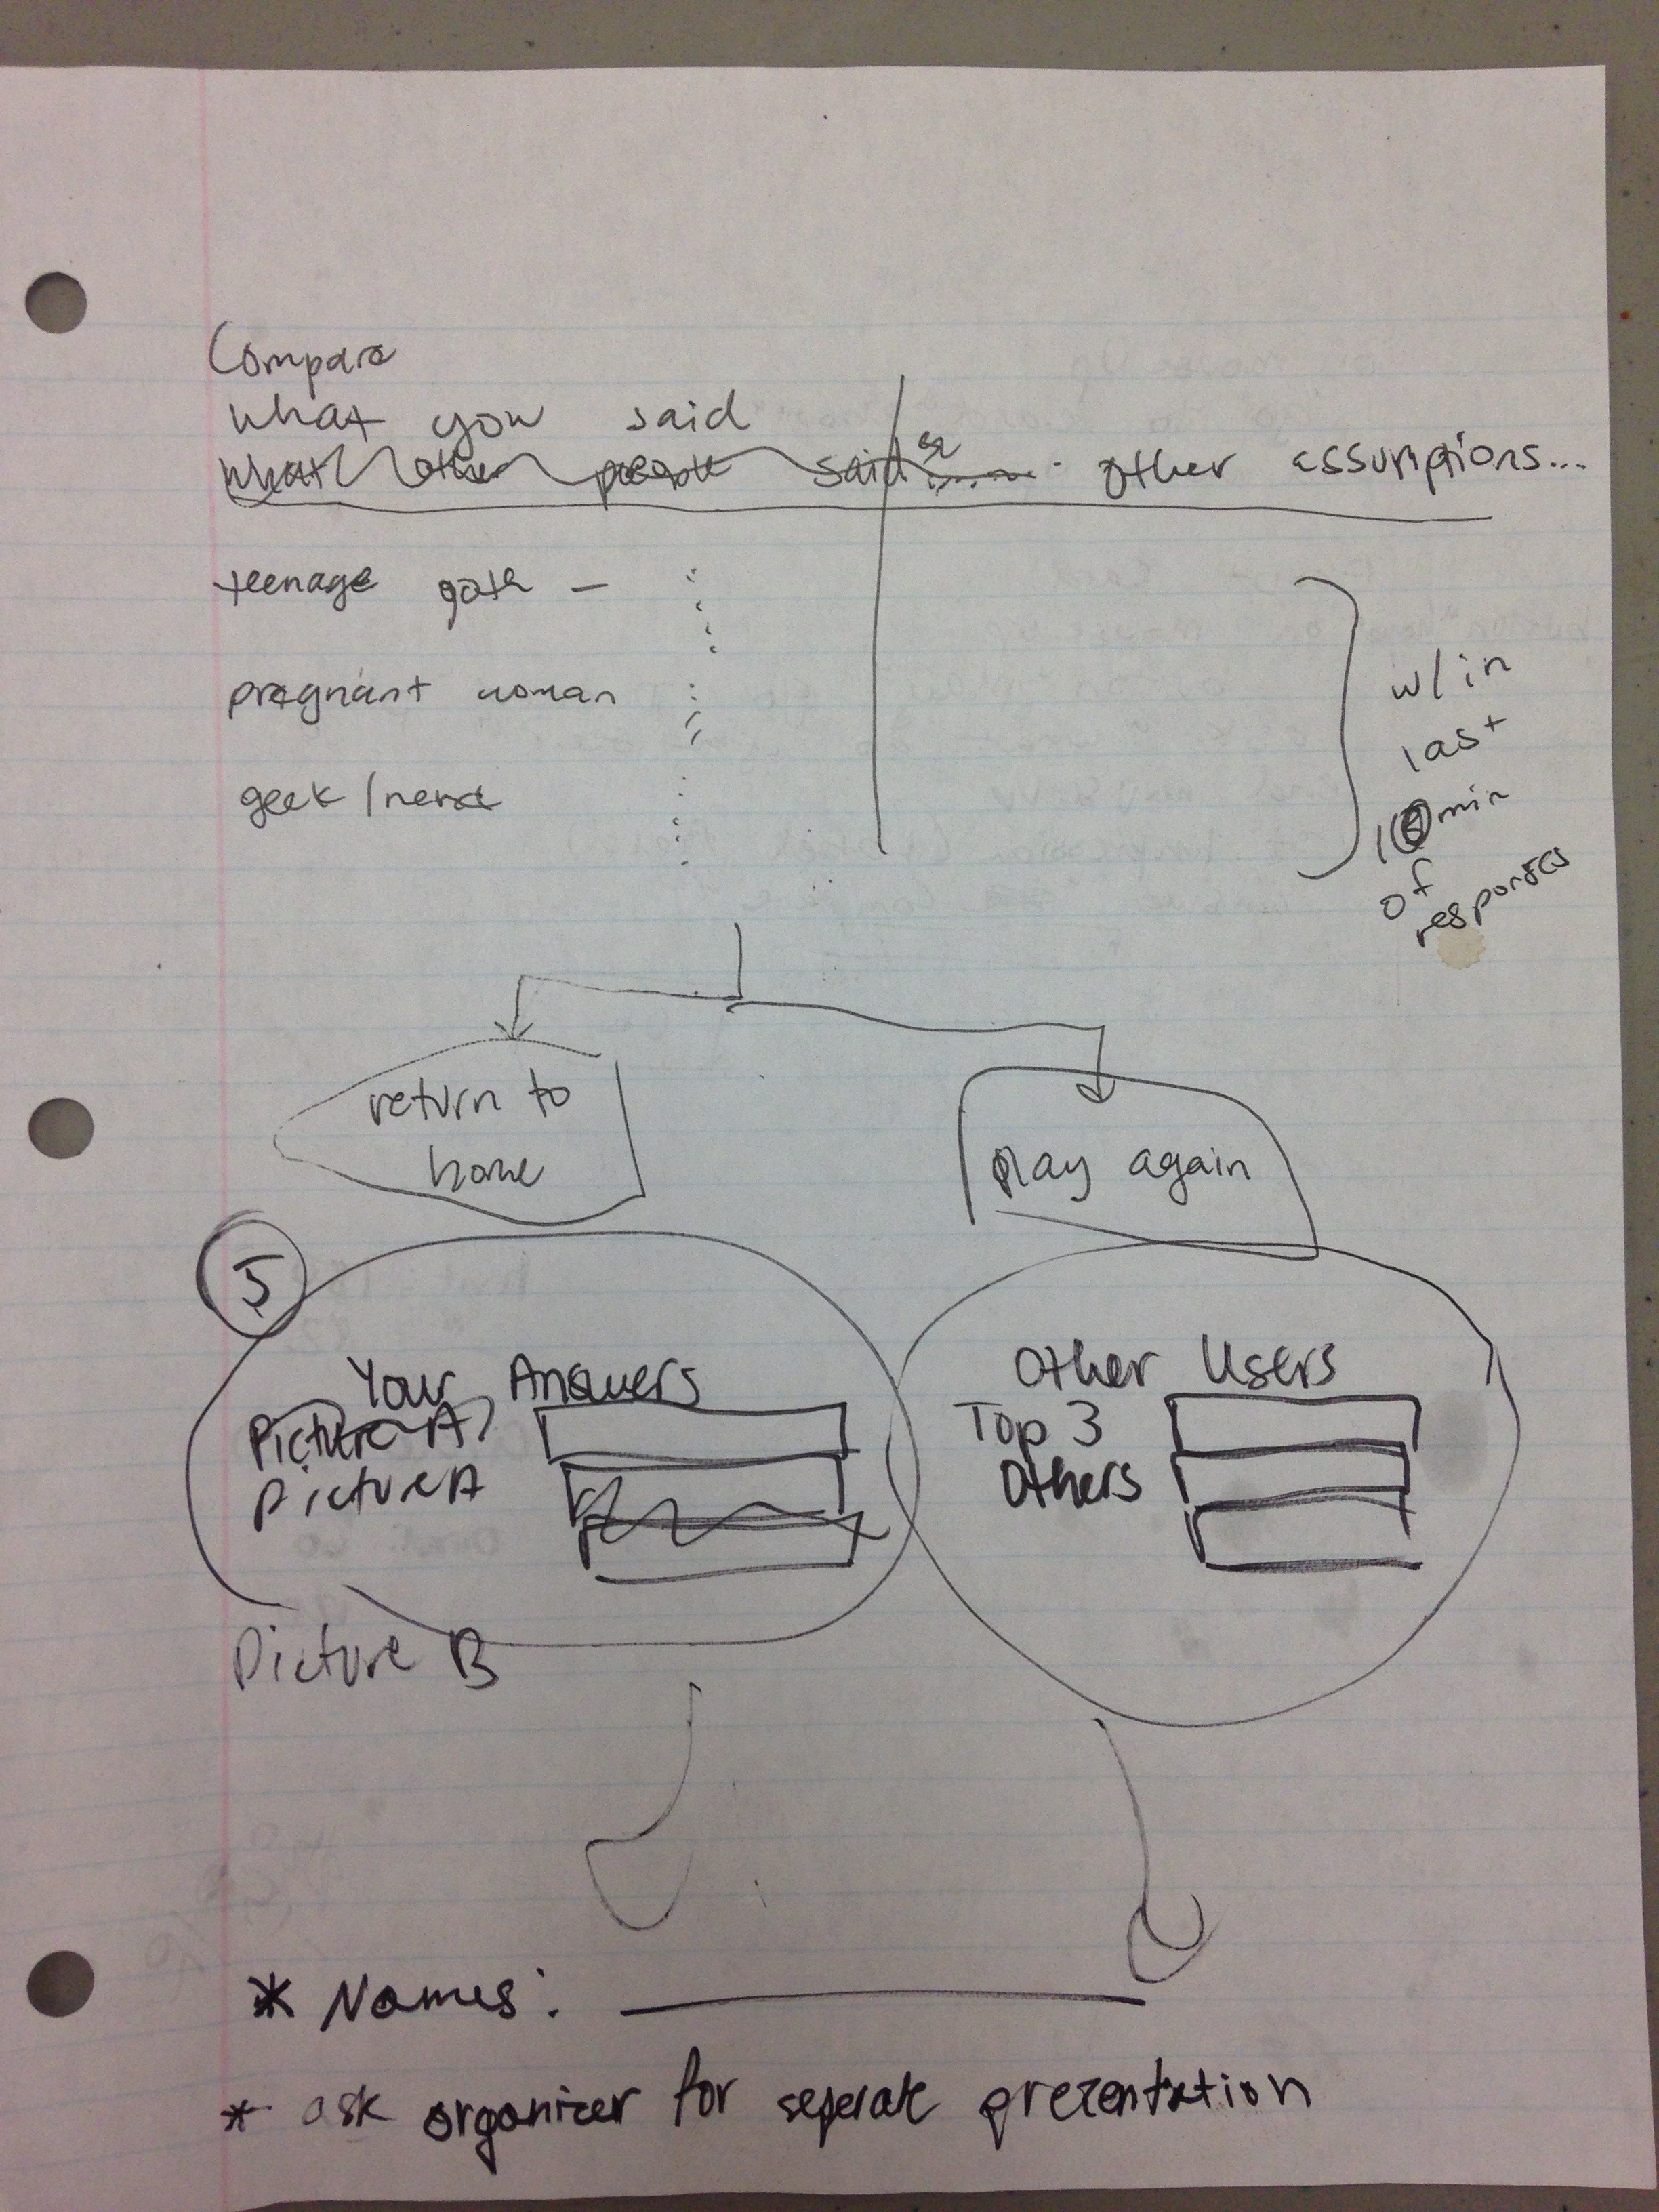 Compare
what you said
what other people said other assumptions...
teenage goth —
pregnant woman
geek/nerd
w/in
last
10 min
of
responses
return to
home
play again
5
Your Answers
Picture A
Picture A
Picture B
Other Users
Top 3
Others
* Names: 
* ask organizer for seperate prezentation